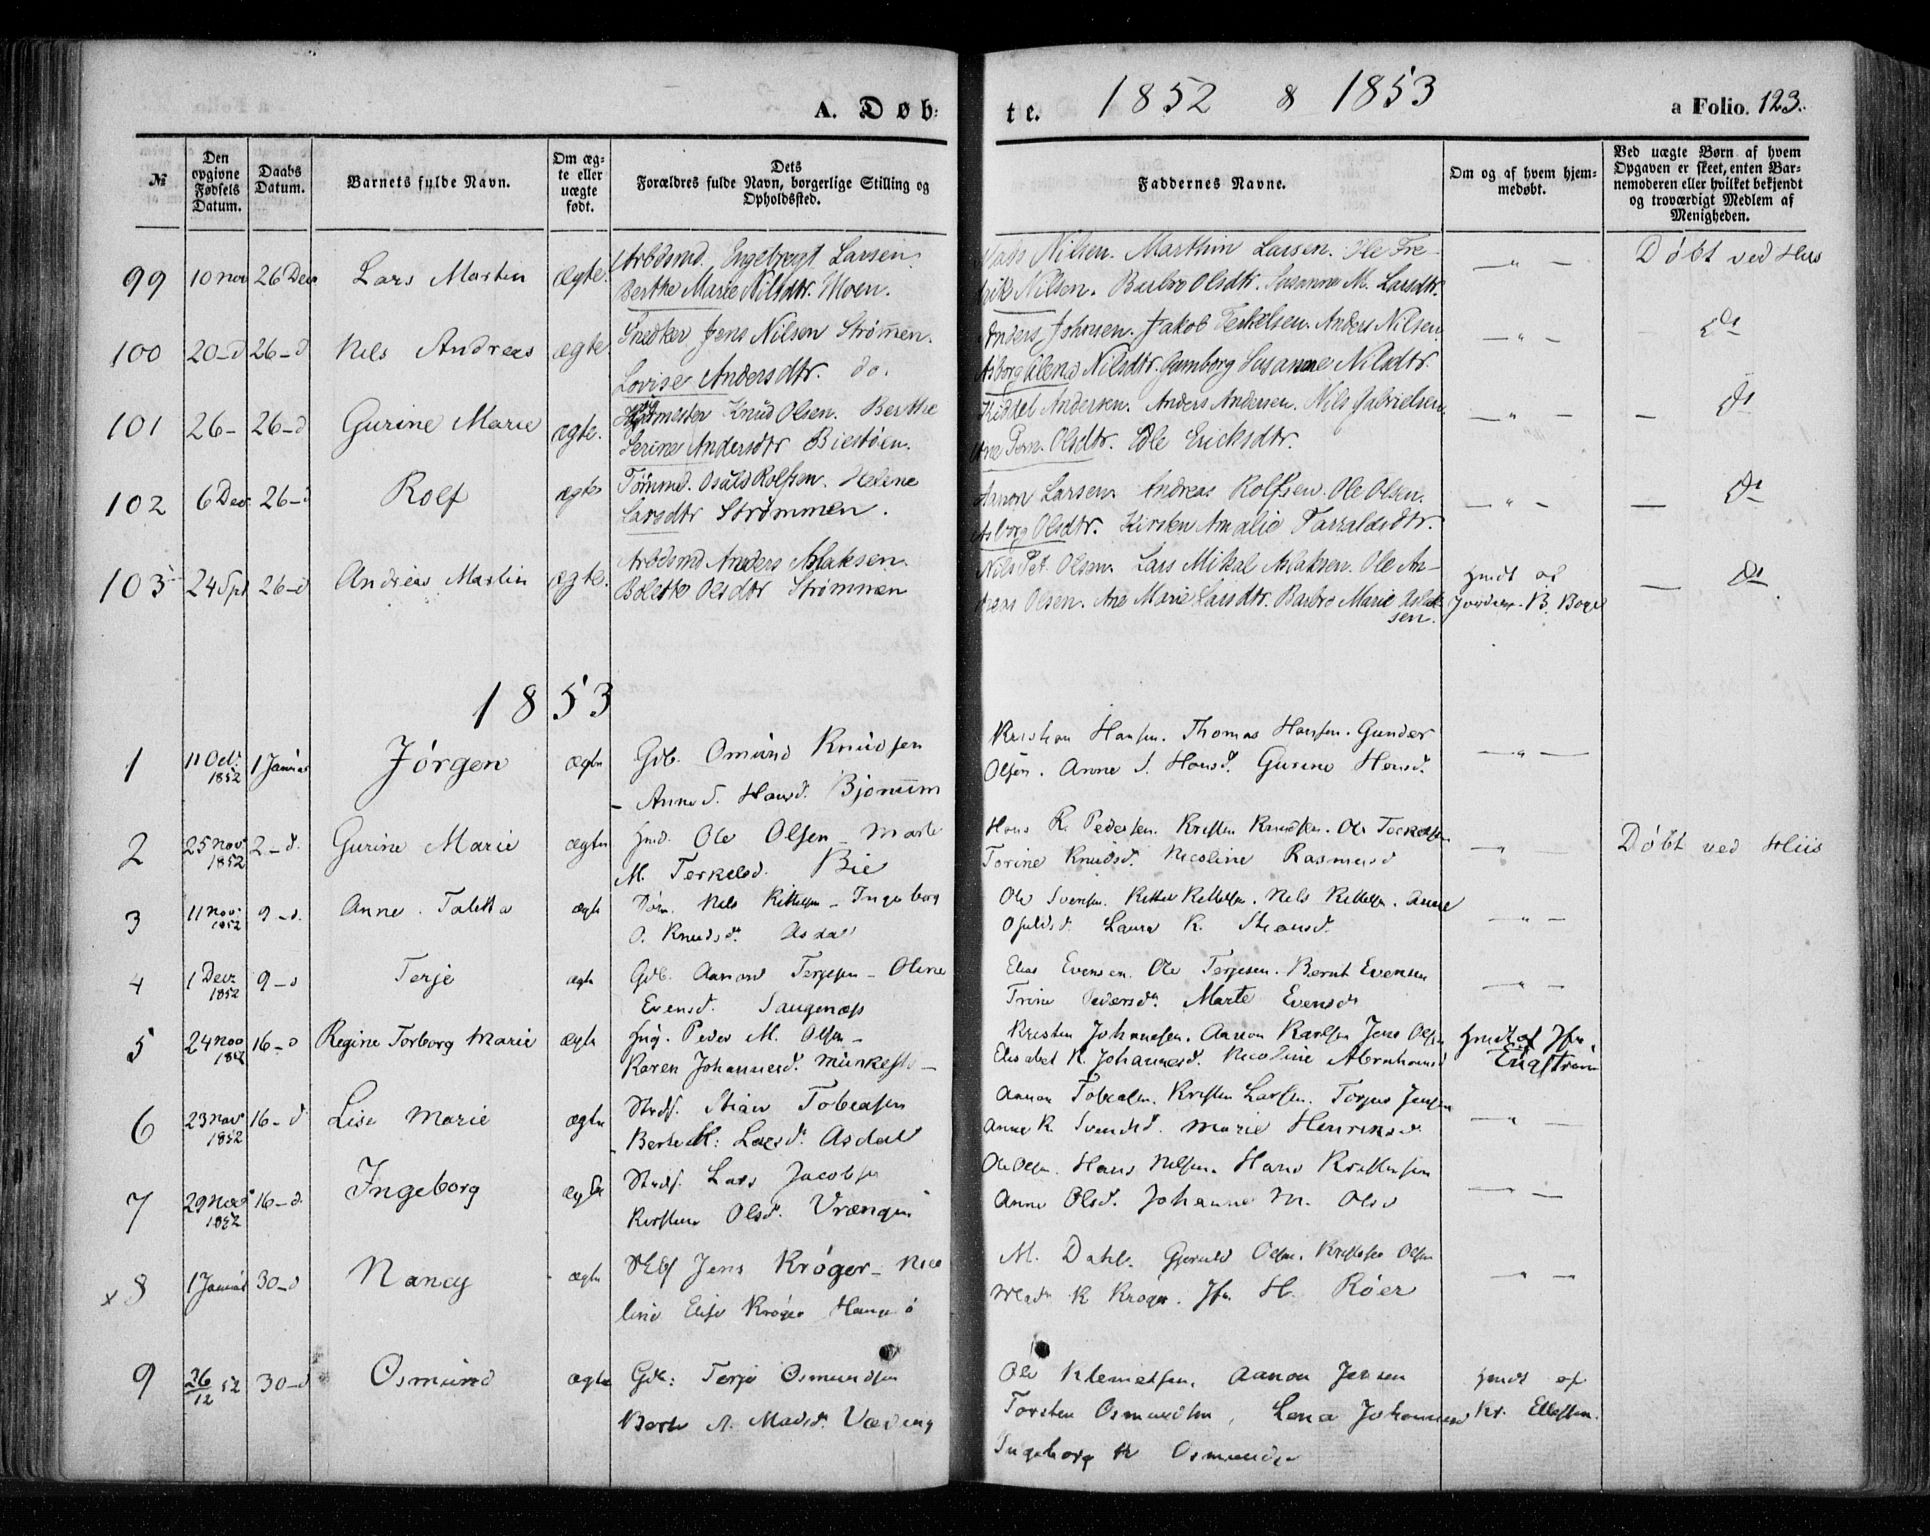 A. Døb-
te. 1852 & 1853 a Folio. 123.
№
Den opgivne Fødsels Datum.
Daabs Datum.
Barnets fulde Navn.
Om ægte eller uægte født.
Dets
Forældres fulde Navn, borgerlige Stilling og
Opholdssted.
Faddernes Navne.
Om og af hvem hjemmedøbt.
Ved uægte Børn af hvem
Opgaven er skeet, enten Bar-
nemoderen eller hvilket bekjendt
og troværdigt Medlem af
Menigheden.
99 10 nov 26 Dec Lars Martin ægte. Arbdsmd. Engebregt Larsen. Mads Nilsen. Marthin Larsen. Ole Fre- — " — Døbt ved Huus
Berthe Marie Nilsdtr. Moen. Nilsen. Barbro Olsdtr. Susanne M. Larsdtr.
100 20-d 26-d Nils Andreas ægte. Snedker Jens Nilsen Strømmen. Anders Johnsen. Jakob Terkelsen. Anders Nilsen. — " — — do
Lovise Andersdtr. do. Asborg Alene Nilsdtr. Gunborg Susanne Nilsdtr.
101 26- 26-d Gurine Marie ægte. Knud Olsen. Berthe Kittel Andersen. Anders Andersen. Nils Gabrielsen. — " — — do
Serine Andersdtr Bietøen. Olsdtr. Edle Ericksdtr.
102 6 Dec 26-d Rolf ægte Tømmd. Osuld Rolfsen. Helene Aanon Larsen. Andreas Rolfsen. Ole Olsen. — " — — do
Larsdtr Strømmen. Asborg Olsdtr. Kirsten Amalie Tarraldsdtr.
103 24 Spt 26-d Andreas Martin ægte. Arbdsmd Anders Aslaksen. Nils Pet. Olsen. Lars Mikal Aslaksen. Ole An- hmdt af — do
Bolette Olsdtr Strømmen dreas Olsen. Ane Marie Larsdtr. Barbro Marie Aslak- B. Boye
sen.
1853
1 11 Oct. 1852 1 Januar Jørgen ægte Gdb. Omund Knudsen Kristian Hansen. Thomas Hansen. Gunder — " —
Anne S. Hansd. Bjorum Olsen. Anne S. Hansd. Gurine Hansd.
2 25 Nov 1852 2-d. Gurine Marie ægte hmd. Ole Olsen – Marte Hans R. Pedersen. Kristen Knudsen. Ole Terkelsen — " — Døbt ved Huus
M. Terkelsd. Bie Torine Knudsd. Nicoline Rasmusd
3 11 nov. 1852 9-d. Anne Taletta ægte Nils Kittelsen – Ingeborg Ole Svensen. Kittel Kittelsen. Nils Kittelsen. Anne — " —
O. Knudsd. Asdal Osuldsd. Laura K. Stiansd.
4 1 Decr. 1852 9-d Terje ægte Gdb. Aanon Terjesen – Oline Elias Evensen. Ole Terjesen. Bernt Evensen — " —
Evensd. Saugenæs Trine Pedersd. Marte Evensd
5 24 Nov 1852 16-d Regine Torborg Marie ægte Peder M. Olsen – Kristen Johannesen. Aanon Karlsen Jens Olsen hmdt af Jfr.
Karen Johannesd. Elisabet K. Johannesd. Nicoline Abrahamsd Engstrøm
6 23 Nov 1852 16-d Lise Marie ægte Strds. Stian Tobiasen Aanon Tobiasen. Kristen Larsen. Torjus Jensen — " —
Berte M. Larsd. Asdal Anne K. Svendsd. Marie Henriksd.
7 29 Nov 1852 16-d. Ingeborg ægte Strds. Lars Jacobsen Ole Olsen. Hans Nilsen. Hans Kristensen — " —
Kirstine Olsd. Vrængen Anne Olsd. Johanne M. Olsd
x 8 1 Januar 30-d Nancy ægte Jens Krøger – Nico M. Dahl. Gjeruld Olsen. Kristofer Olsen — " —
line Elise Krøger K Krøger. Jfr. H. Røer
9 26/12 52 30-d Osmund ægte Gdb: Terje Osmundsen Ole Klemetsen. Aanon Jensen hmdt af
Berte A. Madsd. Væding Torsten Osmundsen, Lena Johannesd Kr. Ellefsen.
Ingeborg K Osmundsd